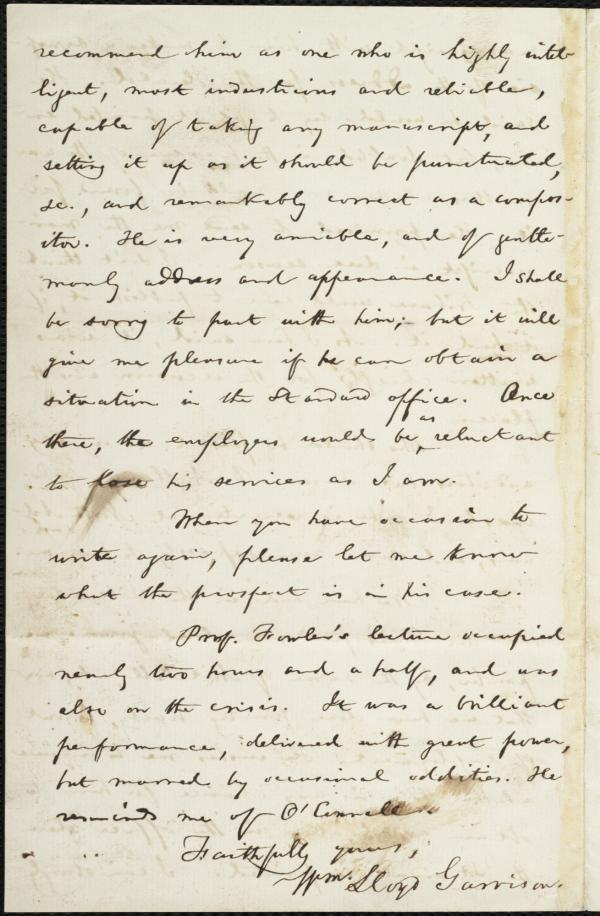 recommend him as one who is highly intel-
ligent, most industrious and reliable,
capable of taking any manuscript, and
setting it up as it should be punctuated,
&c., and remarkably correct as a compos-
itor. He is very amiable, and of gentle-
manly address and appearance. I shall
be sorry to part with him; but it will
give me pleasure if he can obtain a
situation in the Standard office. Once
there, the employers would be as reluctant
to lose his services as I am.
When you have occasion to
write again, please let me know
what the prospect is in his case.
Prof. Fowler's lecture occupied
nearly two hours and a half, and was
also on the crisis. It was a brilliant
performance, delivered with great power,
but marred by occasional oddities. He
reminds me of O'Connell.
Faithfully yours,
Wm. Lloyd Garrison.